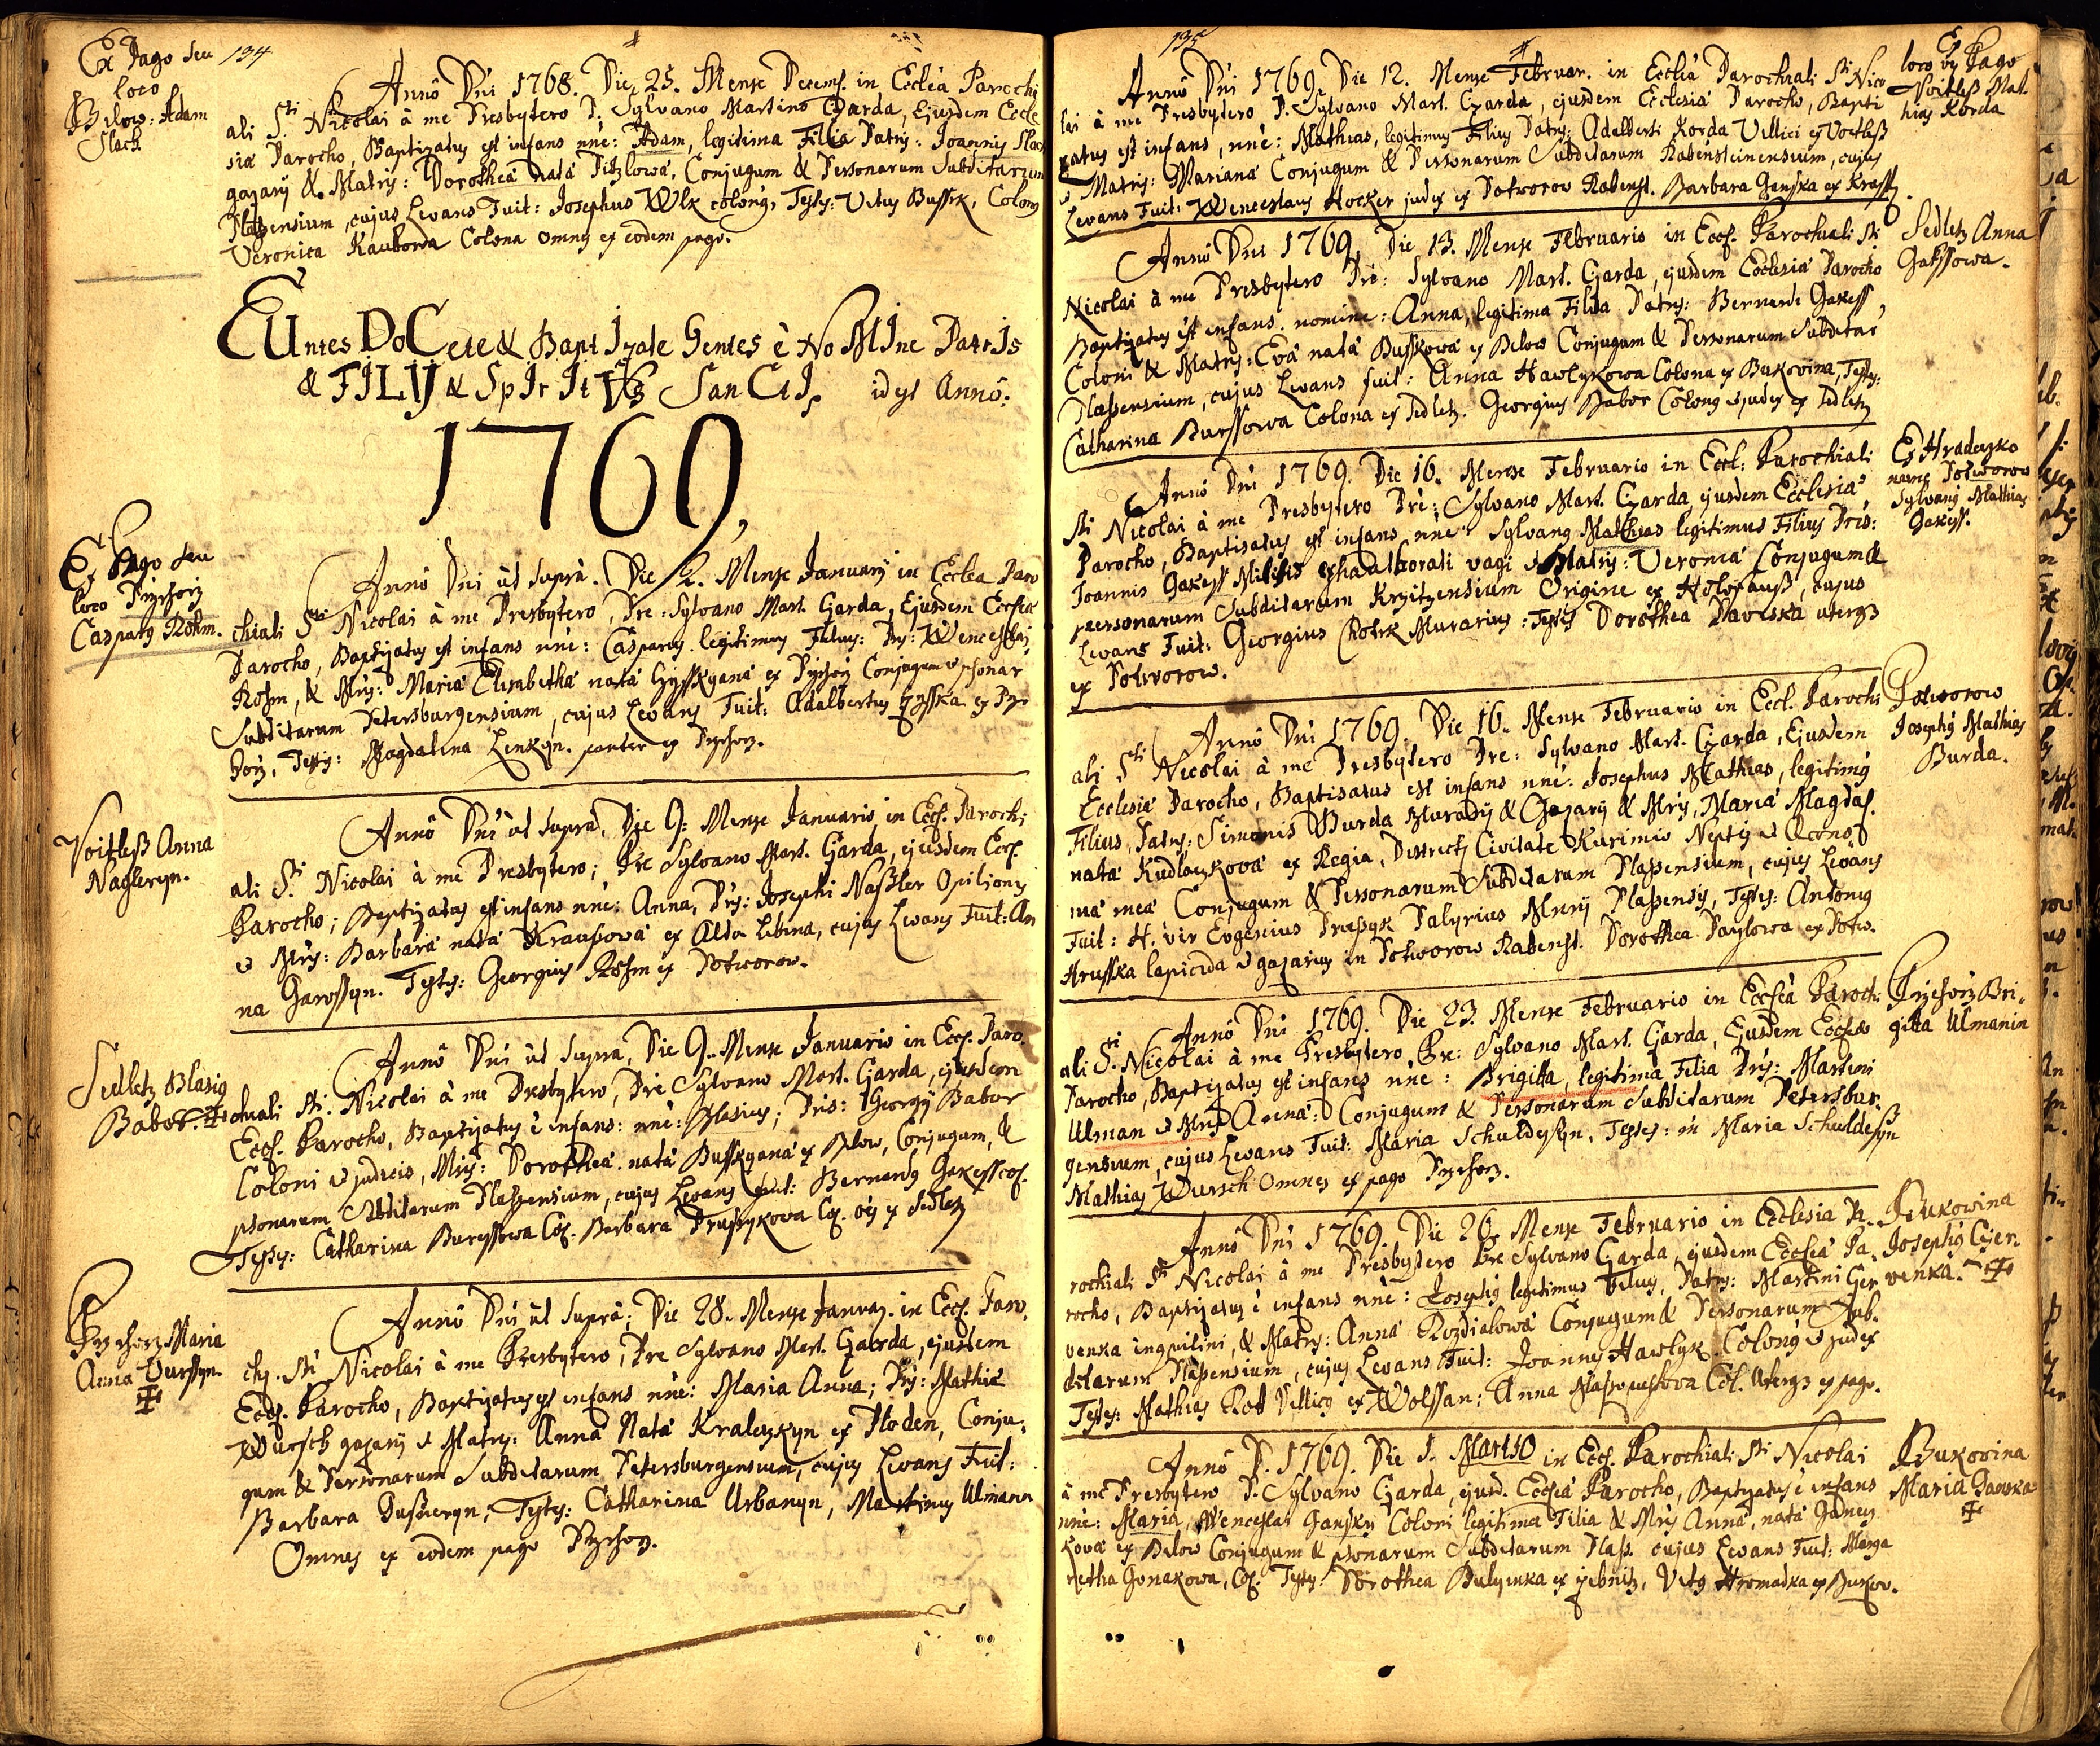 134
Ex Pago seu
loco
Bilow: Adam
Slach
Annô Dni 1768. Die 25. Mense Decemb. in Ecclea Parochi
ali Sti Nicolai à me Presbytero P. Sylvano Martino Czarda, Ejusdem Eccle
siæ Parocho, Baptizatus est infans nñe: Adam, legitima Filia Patris: Joannis Slach
gazarÿ & Matris: Dorothea nata Pitzlowa, Conjugum & Personarum Subditarum
Plassensium, cujus Levans Fuit: Josephus Wlk colonus, Testes: Vitus Bussek, Colonus
Veronica Kaukowa Colona omnes ex eodem pago.
EUntes DoCete & BaptIzate Gentes è NoMIne PatrIs
& FILIJ & SpIrItVs SanCtI, id est Annô:
1769,
Ex Pago seu
loco Przehorz
Casparus Röhm.
Annô Dni ut suprà. Die 2. Mense Januarÿ in Ecclea Paro
chiali Sti Nicolai à me Presbytero, Pre: Sylvano Mart. Czarda, Ejusdem Ecclesiæ
Parocho, Baptizatus est infans nñe: Casparus legitimus Filius: Pris: Wenceslai
Röhm, & Mris: Maria Elisabetha nata Hysskyana ex Przehorz Conjugum & psonar
Subditarum Petersburgensium, cujus Levans Fuit: Adalbertus Hysska ex Prze
horz, Testis: Magdalena Lenkyn. pariter ex Przehorz.
Voitless Anna
Nagleryn.
Annô Dni ut supra, Die 9: Mense Januario in Eccl. Parochi
ali Sti Nicolai à me Presbytero; Pre Sylvano Mart. Czarda, ejusdem Eccl.
Parocho; Baptizatus est infans nñe: Anna, Pris: Josephi Nassler Opilionis
& Mris: Barbara nata Kraussowa ex Alda Libina, cujus Levans Fuit: An
na Garossyn. Testis: Georgius Röhm ex Potworow.
Sedletz Blasius
Babor. ‡
Annô Dni ut supra, Die 9. Mense Januario in Eccl. Paro
chiali Sti. Nicolai à me Presbytero, Pre Sylvano Mart. Czarda, ejusdem
Eccl. Parocho, Baptizatus è infans: nñe: Blasius; Pris: Georgÿ Babor
Coloni & judicis, Mris: Dorothea nata Busskyana ex Bilow, Conjugum, &
psonarum Subditarum Plassensium, cujus Levans fuit: Bernardus Gakess col.
Testes: Catharina Buryssowa Col. Barbara Prussykowa Col. oes ex Sedletz
Przehorz Maria
Anna Vurssyn.
‡
Annô Dni ut suprà; Die 28. Mense Januar. in Eccl. Paro
ch. Sti Nicolai à me Presbytero, Pre Sylvano Mart. Czarda, ejusdem
Eccl. Parocho, Baptizatus est infans nñe: Maria Anna; Pris: Mathiæ
Wursch gazarÿ & Matris: Anna Nata Kraleczkyn ex Ploden, Conju:
gum & Personarum Subditarum Petersburgensium, cujus Levans Fuit:
Barbara Gussneryn, Testes: Catharina Urbanyn, Martinus Ulmann
Omnes ex eodem pago Przehorz.
135
Ex
loco vel Pago
Voitless Mat
hias Korda
Annô Dni 1769. Die 12. Mense Februar. in Ecclia Parochiali Sti Nico
lai à me Presbytero P. Sylvano Mart. Czarda, ejusdem Ecclesiæ Parocho, Bapti
zatus est infans, nñe: Mathias, legitimus Filius Patris: Adalberti Korda Villici ex Voitless
& Matris: Mariana Conjugum & Personarum Subditarum Rabensteinensium, cujus
Levans Fuit: Wenceslaus Hocker judex ex Potworow Rabenst. Barbara Ganska ex Krasch
Sedletz Anna
Gakssowa.
Annô Dni 1769, Die 13. Mense Februario in Eccl. Parochiali Sti
Nicolai à me Presbytero Pre: Sylvano Mart. Czarda, ejusdem Ecclesiæ Parocho
Baptizatus est infans. nomine: Anna, legitima Filia Patris: Bernardi Gakess,
Coloni & Matris: Eva nata Busskowa ex Bilow Conjugum & Personarum Subditar
Plassensium, cujus Levans fuit: Anna Hawlykowa Colona ex Bukowina, Testes:
Catharina Burssowa Colona ex Sedletz. Georgius Babor Colonus & judex ex Sedletz
Ex Hradeczko
nunc Potworow
Sylvanus Mathias
Gakess.
Annô Dni 1769. Die 16. Mense Februario in Eccl: Parochiali
Sti Nicolai à me Presbytero Pre: Sylvano Mart. Czarda, ejusdem Ecclesiæ,
Parocho, Baptisatus est infans nñe: Sylvanus Mathias legitimus Filius Pris:
Joannis Gakess Militis exhaulborati vagi & Matris: Veronia Conjugum &
personarum Subditarum Krzitzensium Origine ex Holofauss, cujus
Levans Fuit: Georgius Chotek Murarius: Testis Dorothea Pawlska uterqs
ex Potworow.
Potworow
Josephus Mathias
Burda.
Annô Dni 1769. Die 16. Mense Februario in Eccl. Parochi
ali Sti Nicolai à me Presbytero Pre: Sylvano Mart. Czarda, Ejusdem
Ecclesiæ Parocho, Baptisatus est infans nñe: Josephus Mathias, legitimus
Filius, Patris: Simonis Burda Murarÿ & Gazarÿ & Mris, Maria Magdal.
nata Kudlaczkowa ex Regia, Districtus Civitate Kurimio Neptis & Œcono
ma mea Conjugum & Personarum Subditarum Plassensium, cujus Levans
Fuit: H. vir Evgenius Prussyk Palyrius Mrrÿ Plassensis, Testes: Antonius
Hrusska lapicida & gazarius in Potworow Rabenst. Dorothea Payslowa ex Potw.
Przehorz Bri,
gitta Ulmanin
Annô Dni 1769. Die 23. Mense Februario in Ecclea Paroch:
ali Sti. Nicolai à me Presbytero Pre: Sylvano Mart. Czarda, Ejusdem Ecclesiæ
Parocho, Baptizatus est infans nñe: Brigitta, legitima Filia Pris: Martini
Ulman & Mris Anna: Conjugum & Personarum Subditarum Petersbur,
gensium, cujus Levans Fuit: Maria Schuldesyn, Testes: Maria Schuldesyn
Mathias Wursch Omnes ex pago Przehorz.
Bukowina
Josephus Czer:
venka. ‡
Annô Dni 1769. Die 26. Mense Februario in Ecclesia Pa
rochiali Sti Nicolai à me Presbytero Pre Sylvano Czarda, ejusdem Ecclesiæ Pa,
rocho, Baptizatus è infans nñe: Josephus legitimus Filius, Patris: Martini Czer
venka inquilini, & Matris: Anna Rozdialowa Conjugum & Personarum Sub,
ditarum Plassensium, cujus Levans Fuit: Joannes Hawlyk Colonus & judex
Testes: Mathias Rott Villicus ex Wolssan; Anna Massopustova Col. Uterqs ex pago.
Bukovina
Maria Ganska
‡
Annô D. 1769. Die 1. Martio in Eccl. Parochiali Sti Nicolai
à me Presbytero P. Sylvano Czarda, ejusd. Ecclesiæ Parocho, Baptizatus è infans
nñe: Maria, Wenceslai Gansky Coloni legitima Filia & Mris Anna, nata Ganecz
kova ex Bilow Conjugum & psonarum Subditarum Plass. cujus Levans Fuit: Marga
retha Gonakowa, Col. Testes: Dorothea Bulynka ex Zebnitz, Vitus Hromadka ex Bukov.